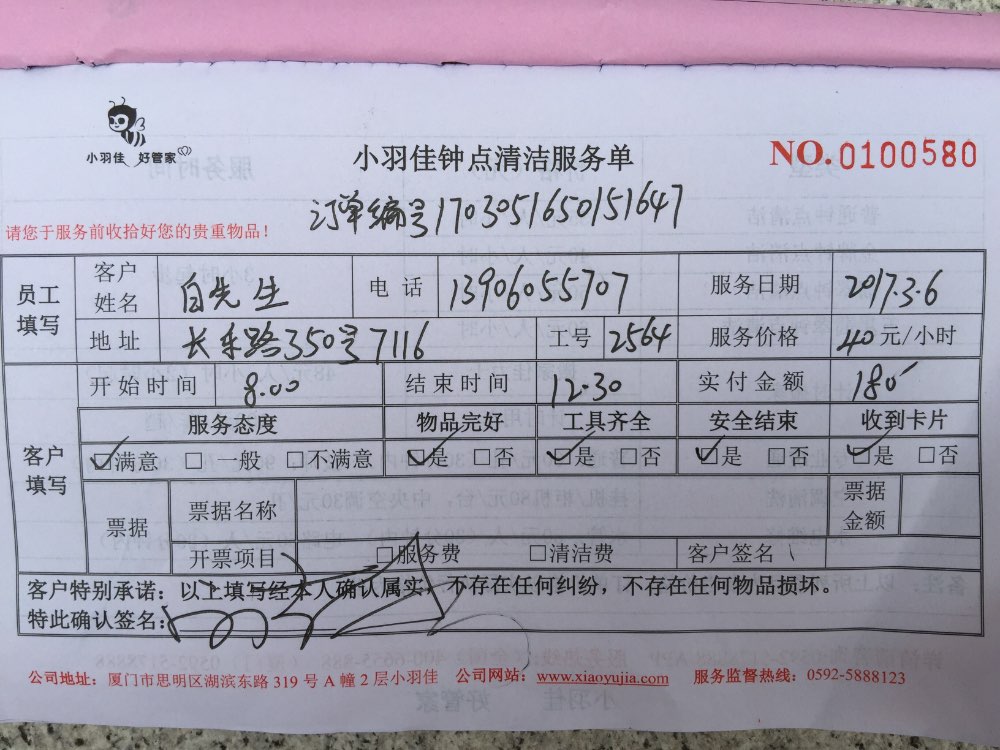 小羽佳 好管家
小羽佳钟点清洁服务单
NO.0100580
订单编号1703051650151647
请您于服务前收拾好您的贵重物品！
员工填写
客户姓名 白先生 电话 13906055707 服务日期 2017.3.6
地址 长乐路350号7116 工号 2564 服务价格 40元/小时
客户填写
开始时间 8.00 结束时间 12.30 实付金额 180
服务态度 物品完好 工具齐全 安全结束 收到卡片
☑满意 □一般 □不满意 ☑是 □否 ☑是 □否 ☑是 □否 ☑是 □否
票据 票据名称 票据金额
开票项目 □服务费 □清洁费 客户签名
客户特别承诺：以上填写经本人确认属实，不存在任何纠纷，不存在任何物品损坏。
特此确认签名：
公司地址：厦门市思明区湖滨东路 319 号 A 幢 2 层小羽佳 公司网站：www.xiaoyujia.com 服务监督热线：0592-5888123